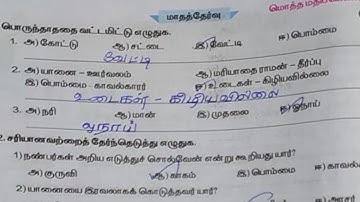 மாதத்தேர்வு
மொத்த
பொருந்தாததை வட்டமிட்டு எழுதுக.
1. அ) கோட்டு ஆ) சட்டை இ) வேட்டி ஈ) பொம்மை
வேட்டி
2. அ) யானை – ஊர்வலம் ஆ) மரியாதை ராமன் - தீர்ப்பு
இ) பொம்மை - காவல்காரர் ஈ) உடைகள் - கிழியவில்லை
உடைகள் - கிழியவில்லை
3. அ) நரி ஆ) மான் இ) முதலை ஈ) ஓநாய்
ஓநாய்
2. சரியானவற்றைத் தேர்ந்தெடுத்து எழுதுக.
1) நண்பர்கள் அறிய எடுத்துச் சொல்வேன் என்று கூறியது யார்?
அ) குருவி ஆ) காகம் இ) பொம்மை ஈ) காவல்
2) யானையை இரவலாகக் கொடுத்தவர் யார்?